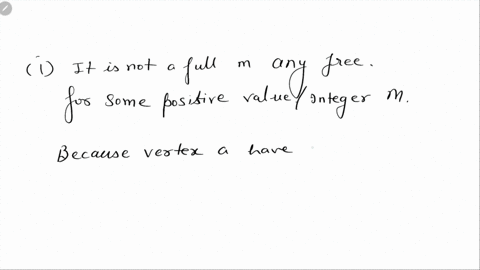 (i) It is not a full m any free.
for some positive value/integer m.
Because vertex a have